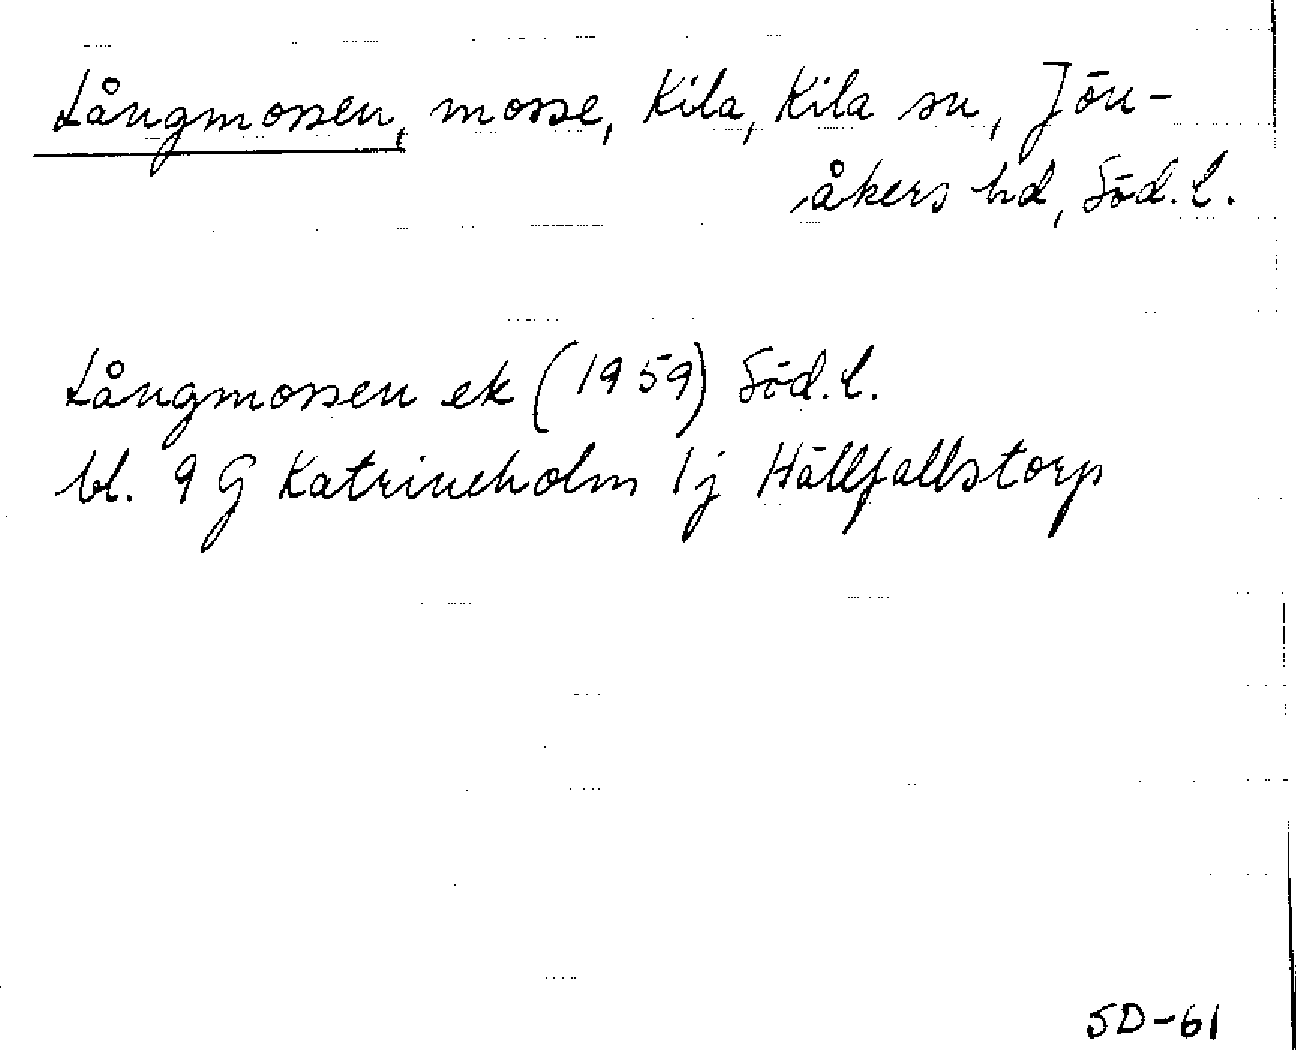 Långmossen, mosse, Kila, Kila sn, Jön-
åkers hd, Söd. l.
Långmossen ek (1959) Söd. l.
bl. 9 G Katrineholm 1j Hällfallstorp
SD-61